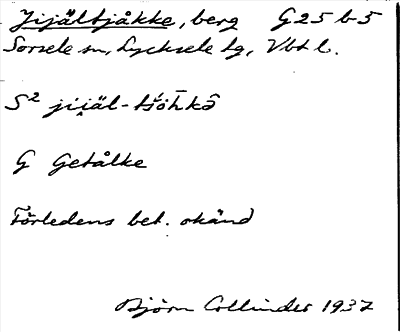 Jijáltjåkke, berg G25 b5
Sorsele sn, Lycksele lg, Vbtl.
S² jijäl-
G Getålke
Förledens bet. okänd
Björn Collinder 1937